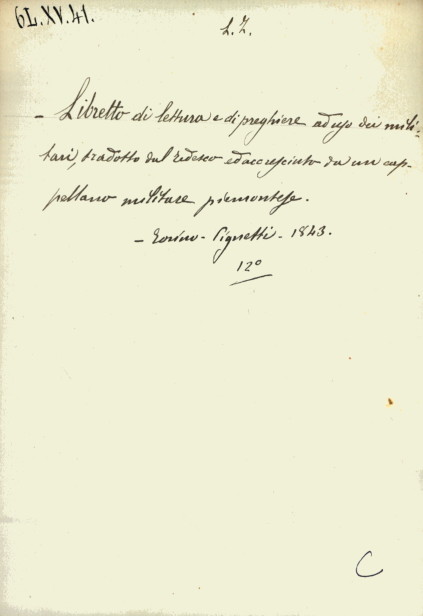 6L.XV.41.
L. Z.
- Libretto di lettura e di preghiere ad uso dei mili-
tari, tradotto dal tedesco ed accresciuto da un cap-
pellano militare piemontese.
- Torino - Pignetti - 1843.
12°
C